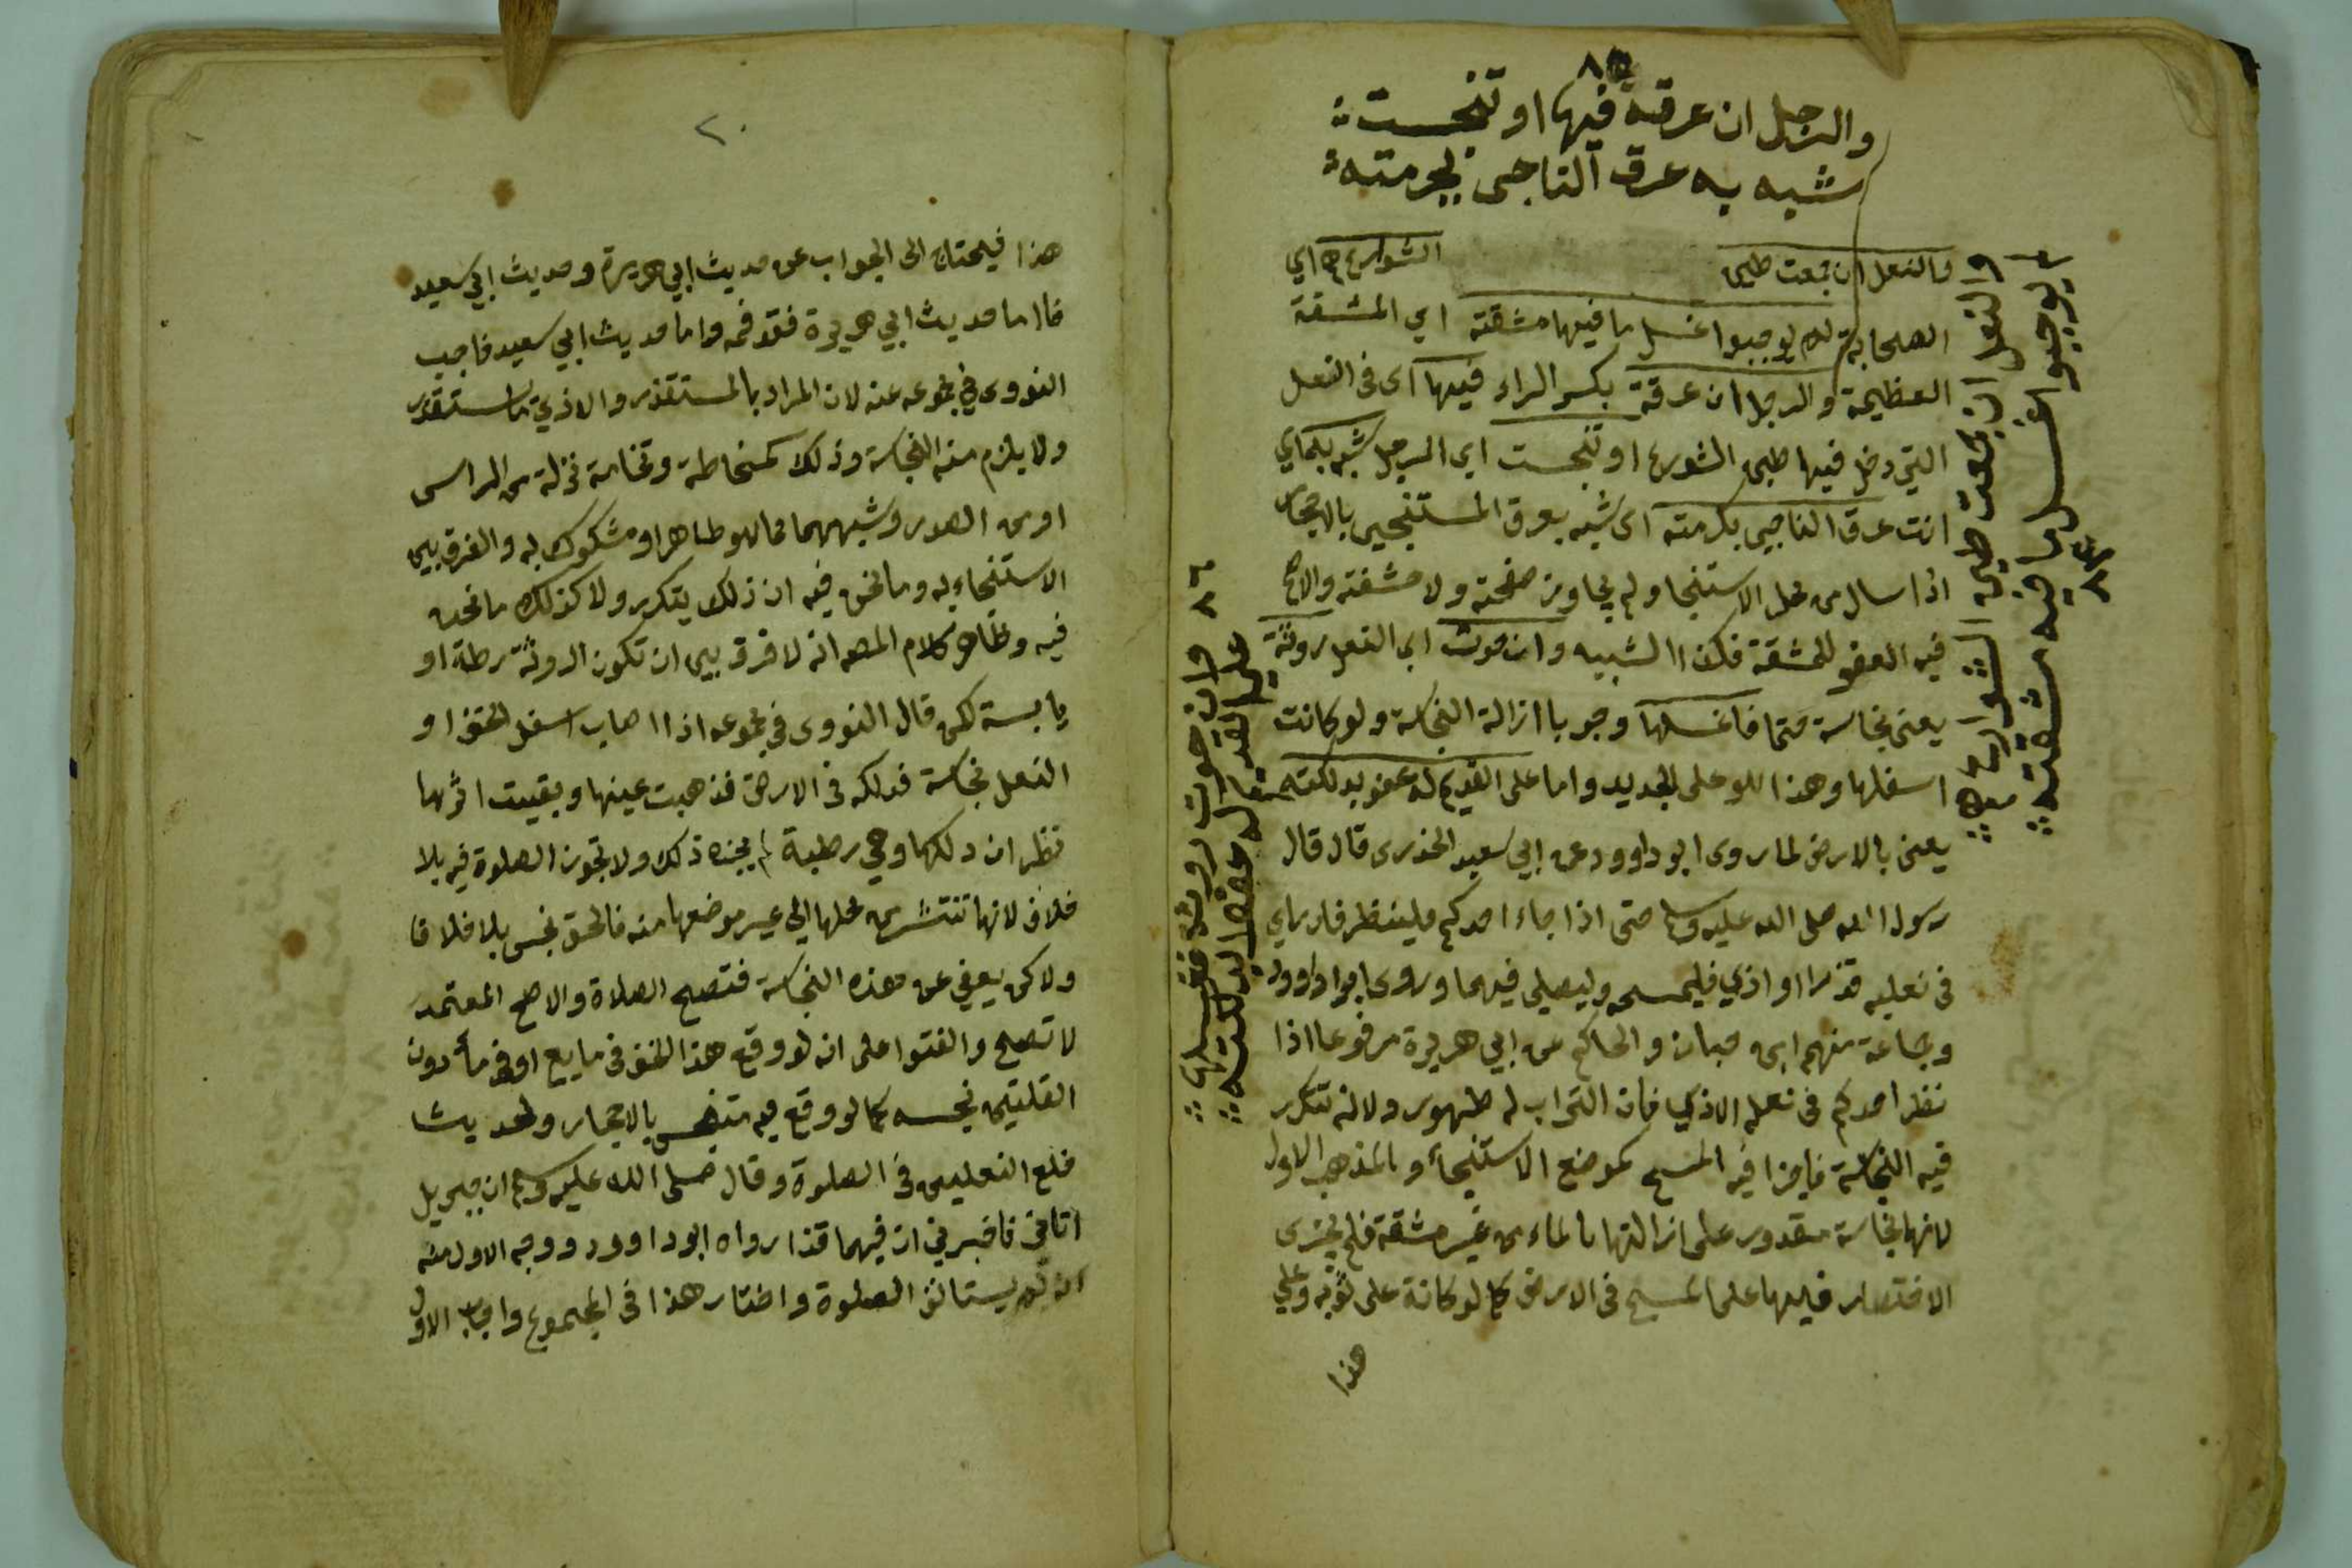 ٨٥
والرجل ان عرقة فيها او تنجست
شبه به عرق الناجى بجرمته
والنعل ان جمعت طين الشوارع اي
الصحابة لم يوجبوا غسل ما فيها مشقته اي المشقة
العظيمة والرجل ان عرقة بكسر الراء فيها اى فى النعل
التي دخل فيها طين الشورع او تنجست اي الرجل شبه
انت عرق الناجى بكرمته اى شبه بعرق المستنجى بالاحجار
اذا سال من محل الاستنجا ولم يجاوز صفحته ولا حشفته والاصح
فيه العفو للمشقة فكذا الشبيه وان حوت اي النعل روثة
يعنى نجاسة فاغسلها وجوبا ازالة النجاسة ولو كانت
اسفلها وهذا هو على الجديد واما على القديم له عفو بدلكته
يعنى بالارض لما روى ابو داوود عن ابي سعيد الخذرى قال قال
رسول الله صلى الله عليه وسلم حتى اذا جاء احدكم فلينظر فان راي
فى نعليه قذرا او اذي فليمسحه وليصلي فيهما وروى ابوا داوود
وجماعة منهم ابن حبان والحاكم عن ابي هريرة مرفوعا اذا
نظر احدكم فى نعله الاذي فان التراب له طهور ولانه تتكرر
فيه النجاسة فاجزا فيه المسح كموضع الاستنجأ والمذهب الاول
لانها نجاسة مقدور على ازالتها بالماء من غير مشقة فلم يجزى
الاقتصار فيها على المسح فى الارض كما لو كانة على ثوبه وعلي
هذا
والنعل ان جمعت طين الشوارع
لم يوجبوا غسل ما فيه مشقته
٨٤
٨٦ وان حوت روثة فغسلها
على القديم له عفو بدلكته
٢٠
هذا فيحتاج الى الجواب عن حديث ابي هريرة وحديث ابي سعيد
فاما حديث ابي هريرة فقد واما حديث ابي سعيد فاجيب
النووى في مجموعه عنه لان المراد بالمستقذر والاذي ما يستقذر
ولا يلزم منه النجاسة وذلك كمخاطة ونخامة نزلة من الراس
او من الصدر وشبههما مما هو طاهر او مشكوك به والفرق بين
الاستنجاء به وما نحن فيه ان ذلك يتكرر ولا كذلك ما نحن
فيه وظاهر كلام المص انه لا فرق بين ان تكون الروثة رطبة او
يابسة لكن قال النووى فى مجموعه اذا اصاب اسفل الخف او
النعل نجاسة فدلكه فى الارض فذهبت عينها وبقيت اثرها
نظر ان دلكها وهي رطبة لم يجزه ذلك ولا تجوز الصلوة فيه بلا
خلاف لانها تنتشر من محلها الى غير موضعها منه فالخف نجس بلا خلاف
ولاكن يعفي عن هذه النجاسة فتصح الصلاة والاصح المعتمد
لا تصح والفتوا على انه لو وقع هذا الخف فى مايع او فى مأ دون
القلتين نجسه كما لو وقع فيه متنجس بالاحجار ولحديث
خلع النعلين فى الصلوة وقال صلى الله عليه وسلم ان جبريل
اتانى فاخبرني ان فيهما قذا رواه ابو داوود ووجه الاول منه
انه لم يستانف الصلوة واختار هذا فى المجموع واجاب الاول